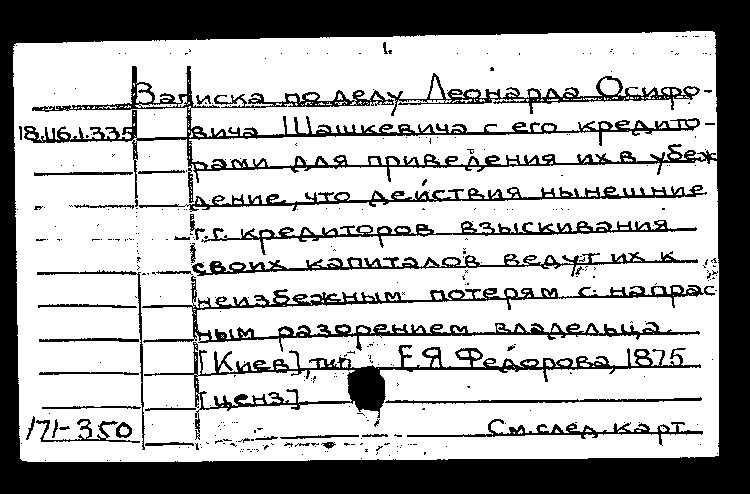 1.
Записка по делу Леонарда Осифо-
18.116.1.335 вича Шашкевича с его кредито-
рами для приведения их в убеж
дение, что действия нынешние
г.г. кредиторов взыскивания
своих капиталов ведут их к
неизбежным потерям с напрас
ным разорением владельца.
[Киев], тип. Е.Я. Федорова, 1875
[ценз.]
171-350 См. след. карт.